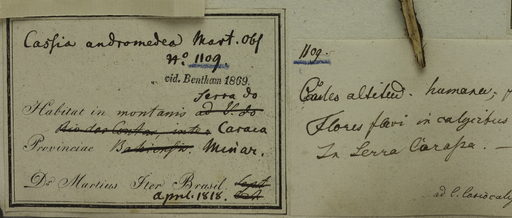 Cassia andromedea Mart. Obs
No. 1109
cid. Bentham 1869.
Serra do
Habitat in montanis ad V. do
Rio das Contas, inter Caraca
Provinciae Bahiensis. Minar.
Dr Martius Iter Brasil.
April. 1818.
1109.
Caules altitud. humanae,
Flores flavi in calycibus
In Serra Carassa. —
ad C.